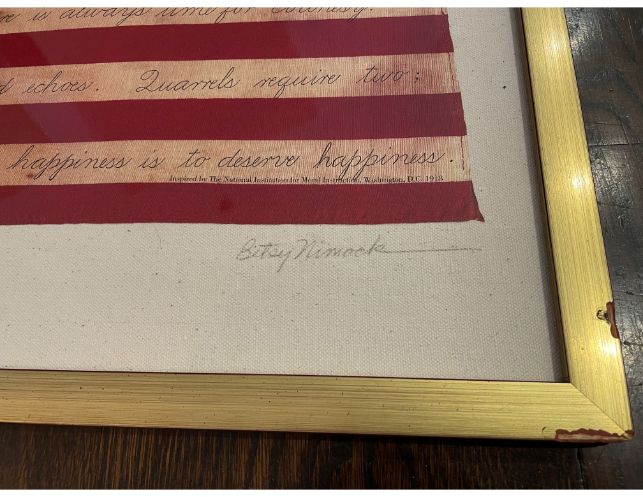 re is always time for courtesy.
d echoes. Quarrels require two;
happiness is to deserve happiness.
Inspired by The National Institution for Moral Instruction, Washington, D.C. 1918
Betsy Nimock